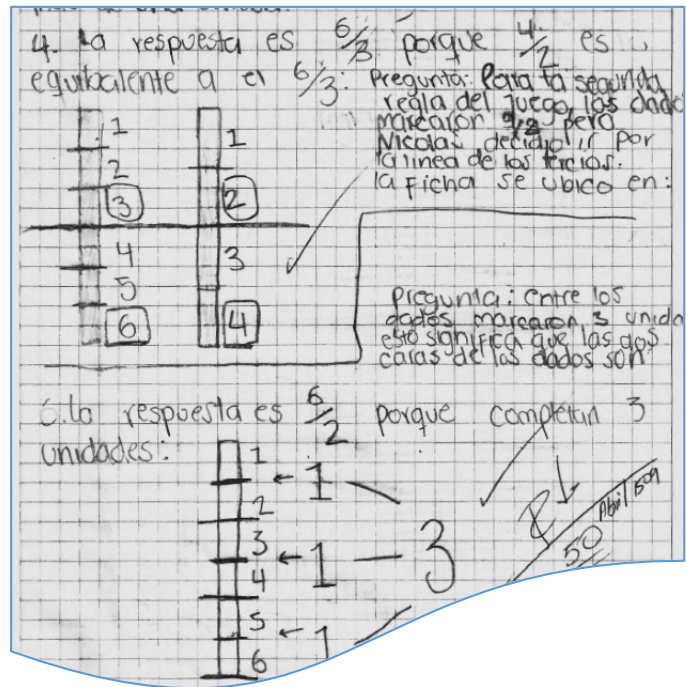 4. la respuesta es 6/3 porque 4/2 es
equibalente a el 6/3:
Pregunta: Para la segunda
regla del juego, los dado
marcaron 4/2 pero
Nicolas decidio ir por
la linea de los tercios.
la ficha se ubico en:
1
2
3
4
5
6
1
2
3
4
pregunta: entre los
dados marcaron 3 unida
esto significa que las dos
caras de los dados son
6. la respuesta es 6/2 porque completan 3
unidades:
1
2
3
4
5
6
1
1
1
3
Abril
50